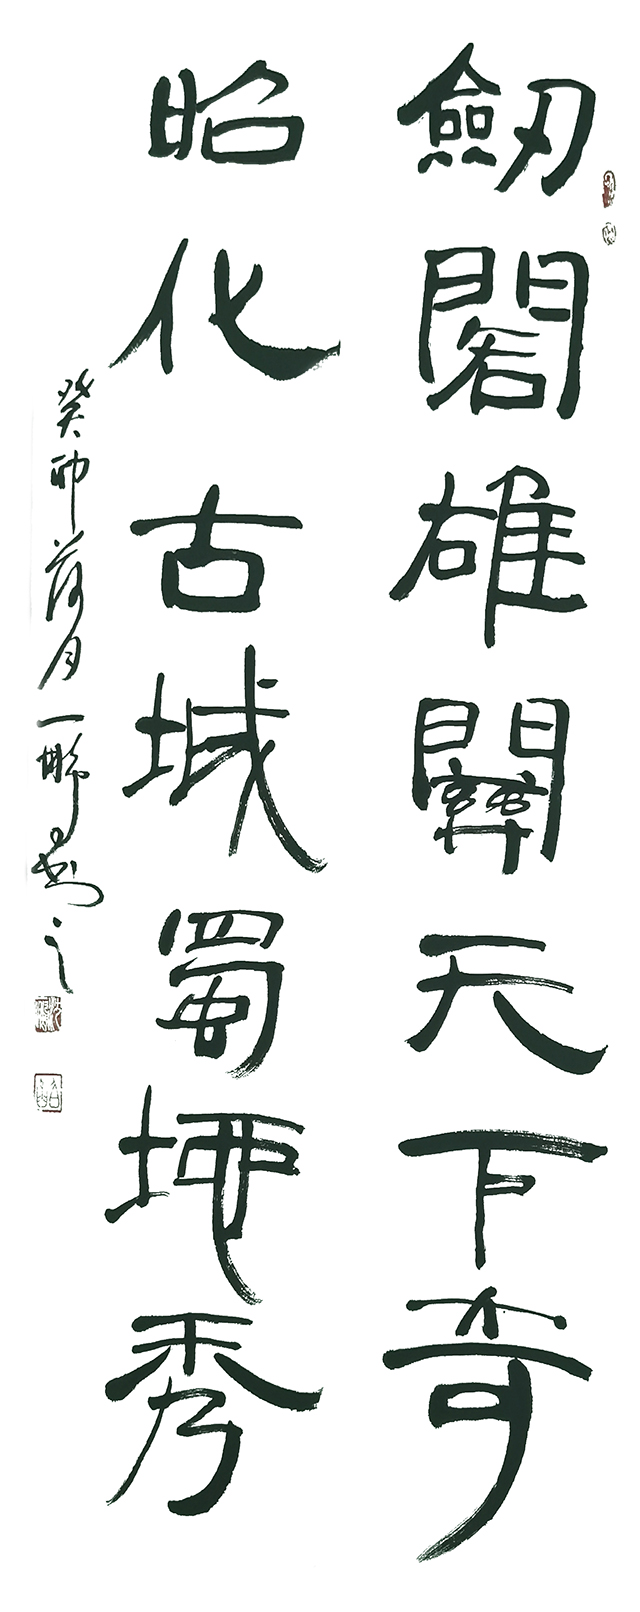 劔閣雄關天下奇
昭化古城蜀地秀
癸卯荷月一鄉書之